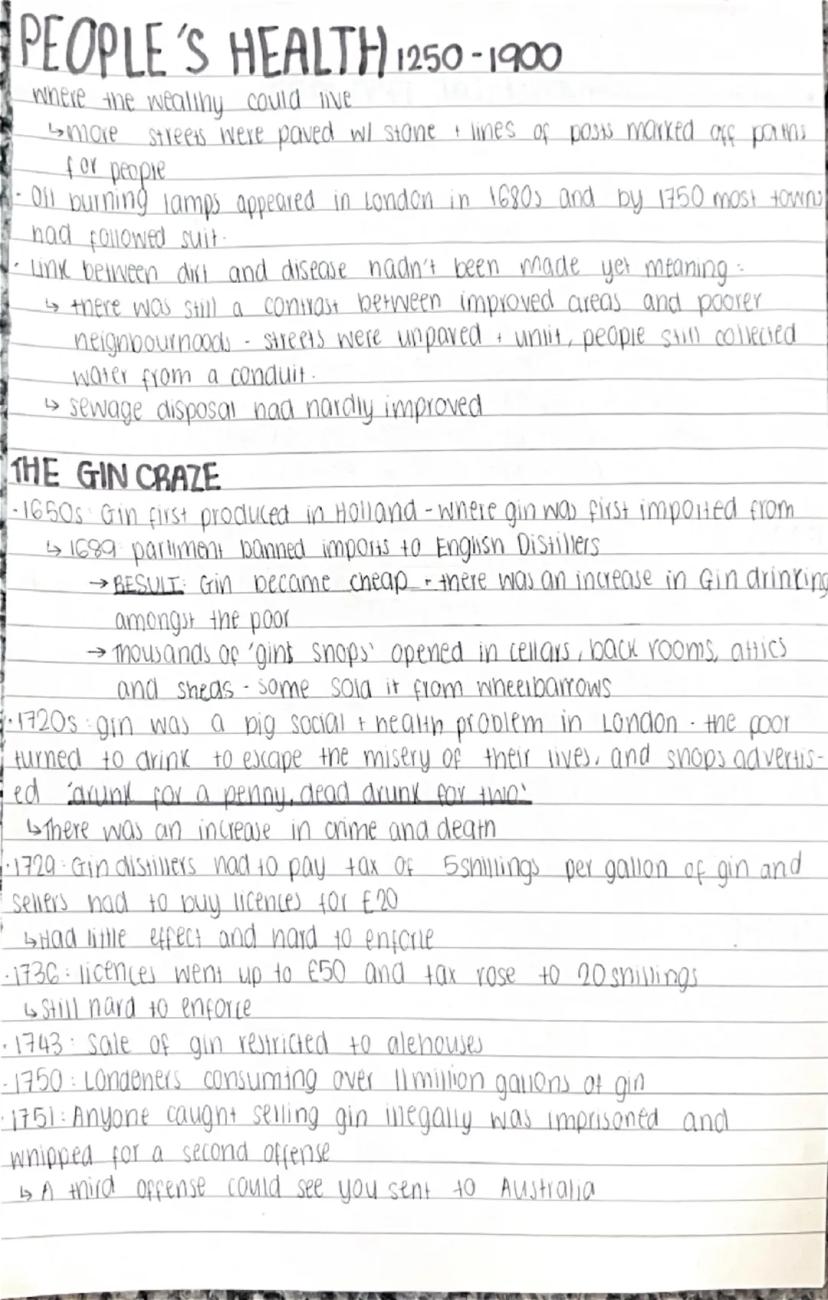 PEOPLE'S HEALTH 1250-1900
where the wealthy could live
↳ more streets were paved w/ stone + lines of posts marked off paths
for people
· Oil burning lamps appeared in London in 1680s and by 1750 most towns
had followed suit.
· Link between dirt and disease hadn't been made yet meaning:
↳ there was still a contrast between improved areas and poorer
neighbourhoods - streets were unpaved + unlit, people still collected
water from a conduit.
↳ sewage disposal had hardly improved
THE GIN CRAZE
· 1650s: Gin first produced in Holland - where gin was first imported from
↳ 1689: parliment banned imports to English Distillers
→ RESULT: Gin became cheap - there was an increase in Gin drinking
amongst the poor
→ Thousands of 'gins shops' opened in cellars, back rooms, attics
and sheds - some sold it from wheelbarrows
· 1720s: gin was a big social + health problem in London - the poor
turned to drink to escape the misery of their lives, and shops advertis-
ed 'drunk for a penny, dead drunk for two'
↳ There was an increase in crime and death
· 1729: Gin distillers had to pay tax of 5 shillings per gallon of gin and
sellers had to buy licences for £20
↳ Had little effect and hard to enforce
· 1736: licences went up to £50 and tax rose to 20 shillings
↳ Still hard to enforce
· 1743: Sale of gin restricted to alehouses
· 1750: Londeners consuming over 11 million gallons of gin
· 1751: Anyone caught selling gin illegally was imprisoned and
whipped for a second offense
↳ A third offense could see you sent to Australia